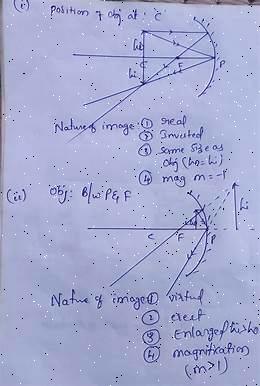 (i) Position of obj at: 'C'
ho
hi
C
F
P
Nature of image: ① real
② Inverted
③ Same size as
obj (ho = hi)
④ mag m = -1
(ii) Obj: B/w P & F
hi
C
F
P
Nature of image ① virtual
② erect
③ Enlarged
④ magnification
(m > 1)